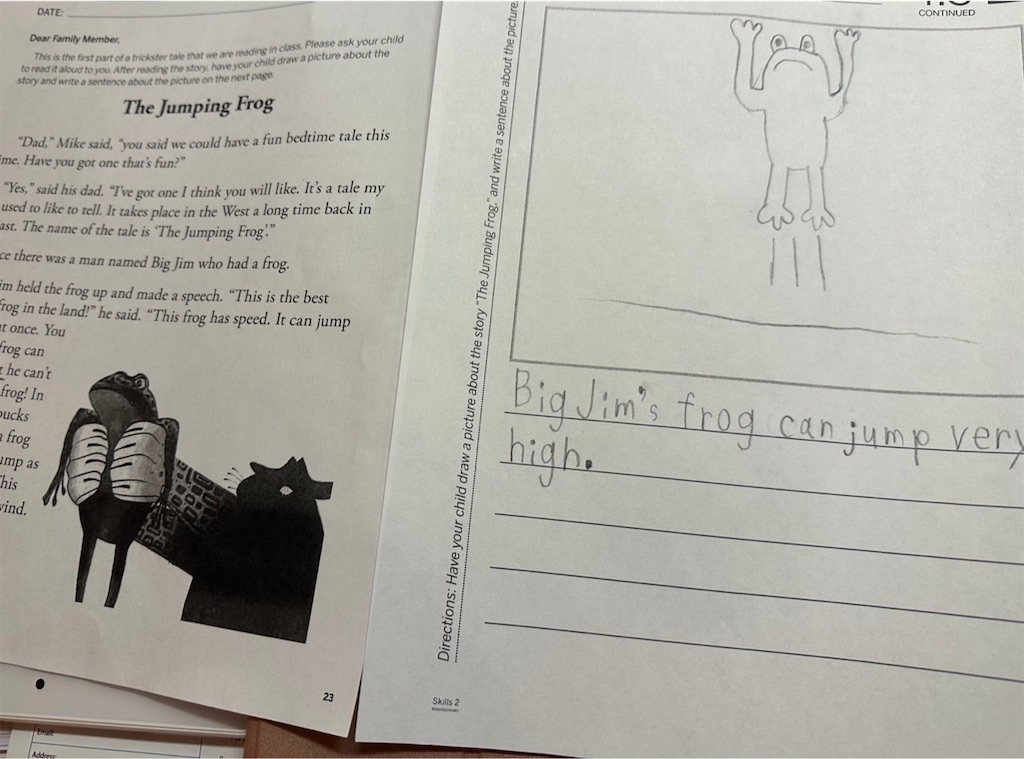 DATE:
Dear Family Member,
This is the first part of a trickster tale that we are reading in class. Please ask your child
to read it aloud to you. After reading the story, have your child draw a picture about the
story and write a sentence about the picture on the next page.
The Jumping Frog
"Dad," Mike said, "you said we could have a fun bedtime tale this
me. Have you got one that's fun?"
"Yes," said his dad. "I've got one I think you will like. It's a tale my
used to like to tell. It takes place in the West a long time back in
ast. The name of the tale is 'The Jumping Frog'."
ce there was a man named Big Jim who had a frog.
im held the frog up and made a speech. "This is the best
frog in the land!" he said. "This frog has speed. It can jump
at once. You
frog can
he can't
frog! In
bucks
frog
ump as
This
wind.
23
Email:
Address:
CONTINUED
Directions: Have your child draw a picture about the story "The Jumping Frog," and write a sentence about the picture.
Big Jim's frog can jump very
high.
Skills 2